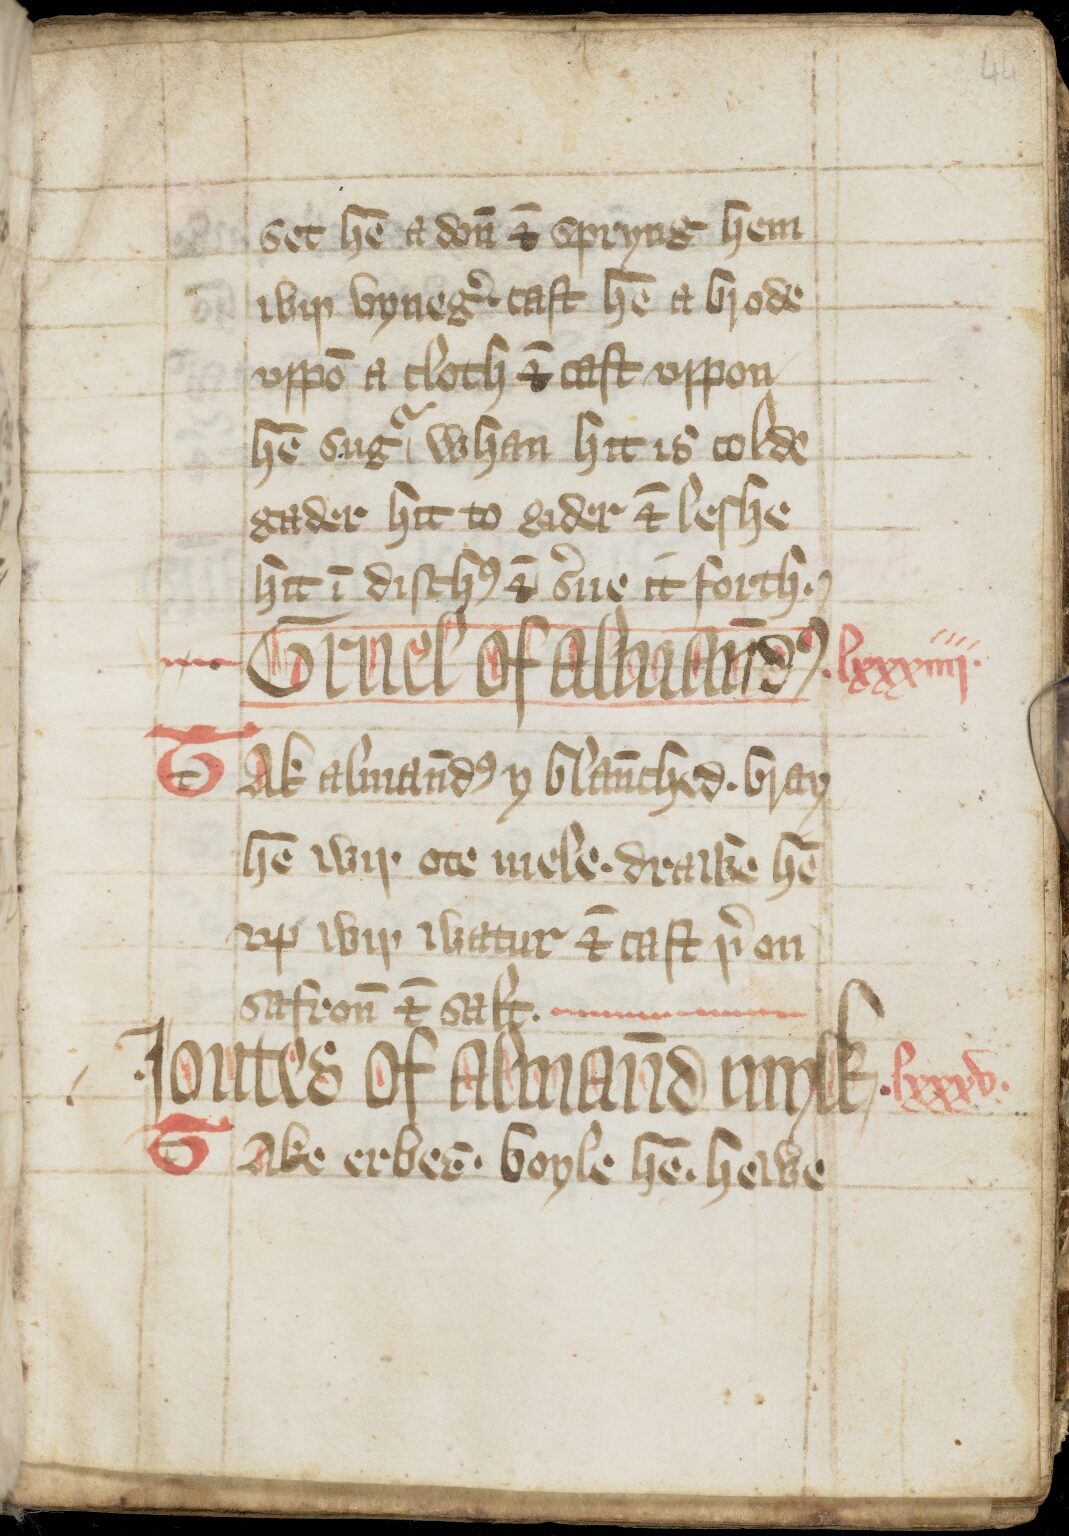 44
set hē a don̄ & spryng hem
wiþ vynegr̉. cast hē a brode
vppō a cloth & cast vppon
hē sugᵃ whan hit is colde
gader hit to gider & leshe
hit ī dischꝰ & s̉ue it forth.
Gruel of almaūdꝰ. lxxxiiij.
Tak almaūdꝰ y blaūched. bray
hē wiþ ote mele. drawe hē
vp wiþ watur & cast þ̉ on
safron̄ & salt.
Joutes of almaūd mylk. lxxxv.
Take erbes. boyle hē. hewe